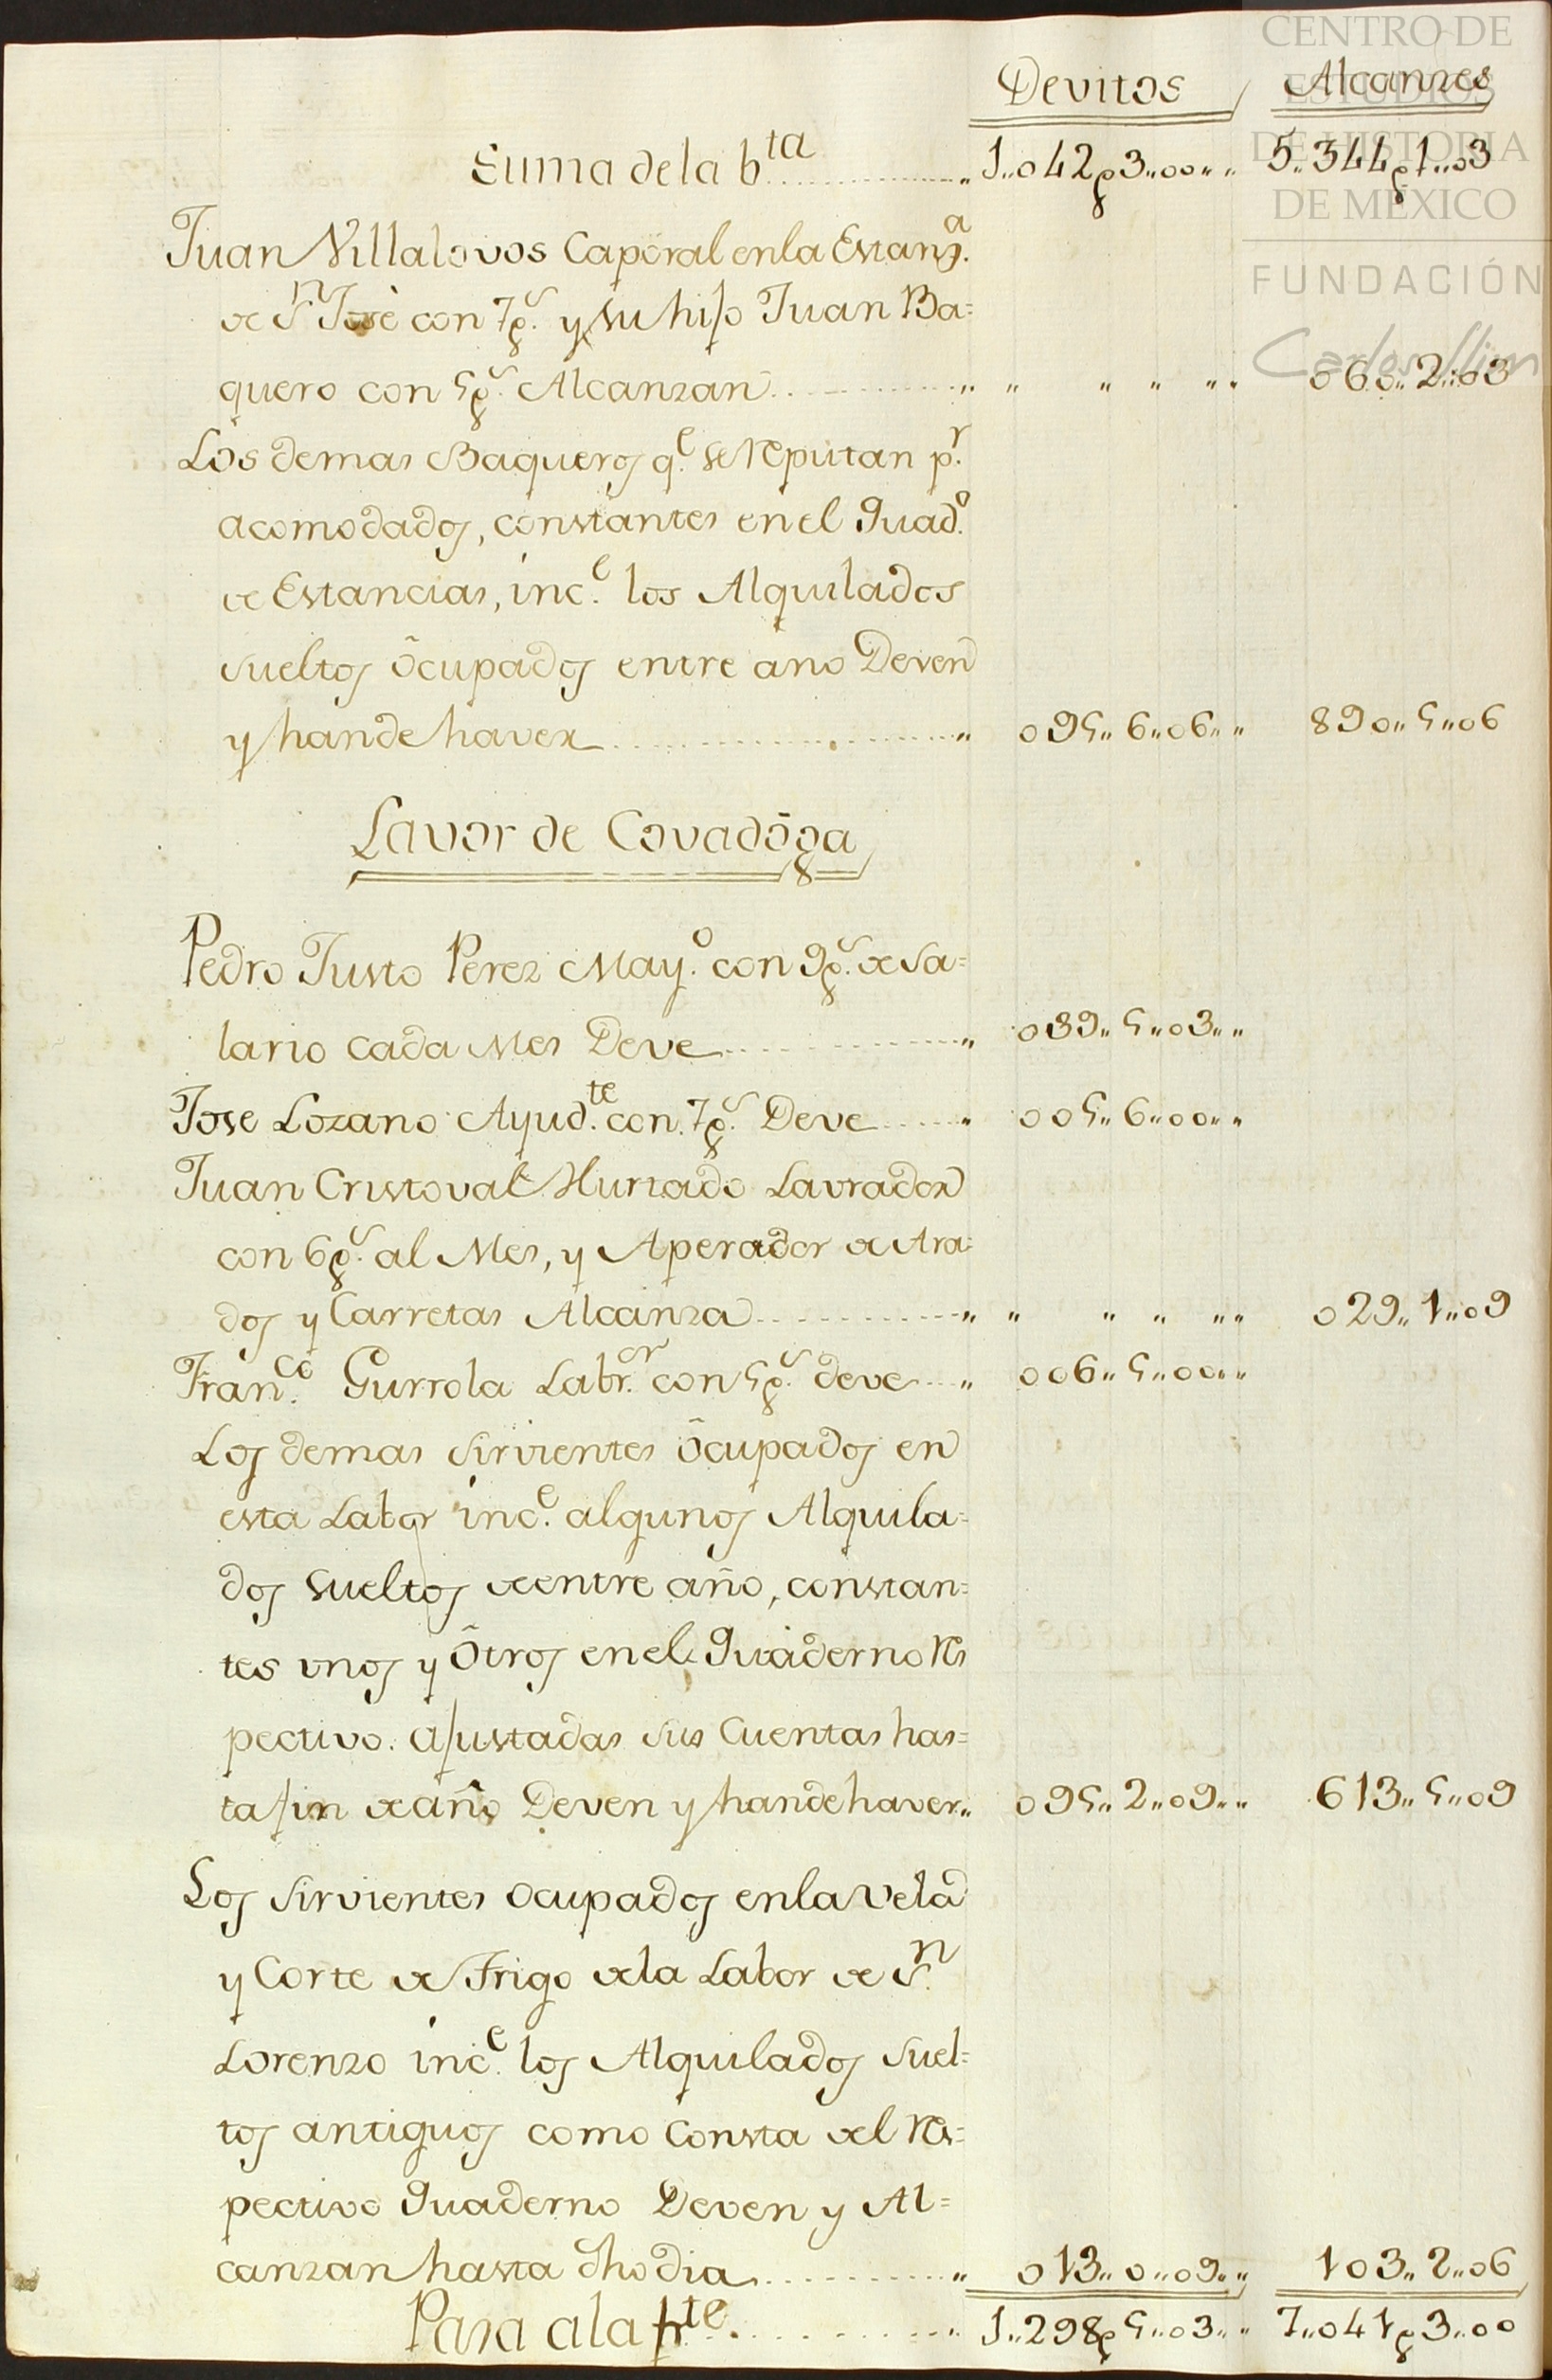 CENTRO DE
ESTUDIOS
DE HISTORIA
DE MÉXICO
FUNDACIÓN
Carlos Slim
Devitos Alcanzes
Suma de la bta 1,,042p3,,00,, 5,,344p1,,03
Juan Villalovos Caporal en la Estanza
de Sn José con 7ps. y su hijo Juan Ba=
quero con 5ps. Alcanzan 060,,2,,03
Los demas Baqueros qe. se Reputan pr.
acomodados, constantes en el Quado.
de Estancias, ince. los Alquilados
sueltos ocupados entre año Deven
y han de haver 095,,6,,06,, 890,,5,,06
Lavor de Covadõga
Pedro Justo Perez Mayo. con 9ps. de Sa=
lario cada Mes Deve 039,,5,,03,,
Jose Lozano Ayudte. con 7ps. Deve 005,,6,,00,,
Juan Cristoval Hurtado Lavrador
con 6ps. al Mes, y Aperador de Ara=
dos y Carretas Alcanza 029,,1,,09
Franco. Gurrola Labror. con 5ps. deve 006,,5,,00,,
Los demas sirvientes ocupados en
esta Labor ince. algunos Alquila=
dos sueltos de entre año, constan=
tes unos y Otros en el Quaderno Res
pectivo. ajustadas sus Cuentas has=
ta fin de año Deven y han de haver,, 095,,2,,09,, 613,,5,,09
Los sirvientes ocupados en la vela
y Corte de Trigo de la Labor de Sn.
Lorenzo ince. los Alquilados suel=
tos antiguos como Consta del Res=
pectivo Quaderno Deven y Al=
canzan hasta dho dia 013,,0,,09,, 103,,2,,06
Pasa a la frte. 1,,298p5,,03,, 7,,041p3,,00